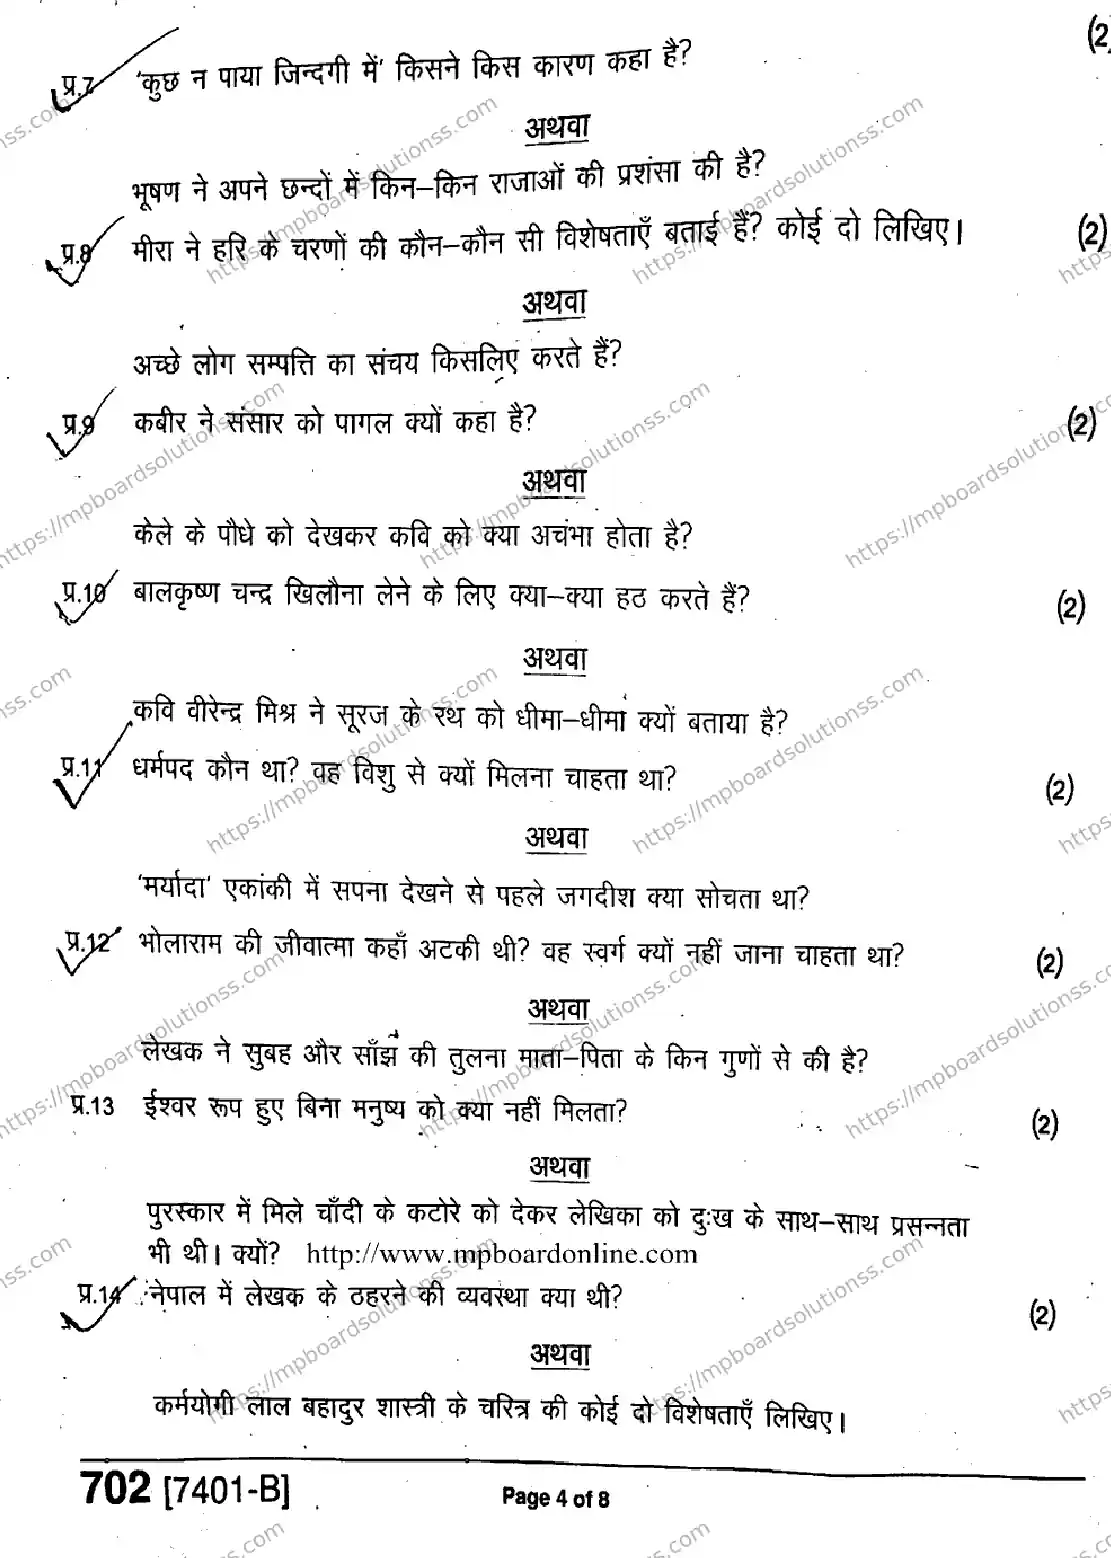 (2)
प्र.7 'कुछ न पाया जिन्दगी में' किसने किस कारण कहा है?
अथवा
भूषण ने अपने छन्दों में किन-किन राजाओं की प्रशंसा की है?
प्र.8 मीरा ने हरि के चरणों की कौन-कौन सी विशेषताएँ बताई हैं? कोई दो लिखिए। (2)
अथवा
अच्छे लोग सम्पत्ति का संचय किसलिए करते हैं?
प्र.9 कबीर ने संसार को पागल क्यों कहा है? (2)
अथवा
केले के पौधे को देखकर कवि को क्या अचंभा होता है?
प्र.10 बालकृष्ण चन्द्र खिलौना लेने के लिए क्या-क्या हठ करते हैं? (2)
अथवा
कवि वीरेन्द्र मिश्र ने सूरज के रथ को धीमा-धीमा क्यों बताया है?
प्र.11 धर्मपद कौन था? वह विशु से क्यों मिलना चाहता था? (2)
अथवा
'मर्यादा' एकांकी में सपना देखने से पहले जगदीश क्या सोचता था?
प्र.12 भोलाराम की जीवात्मा कहाँ अटकी थी? वह स्वर्ग क्यों नहीं जाना चाहता था? (2)
अथवा
लेखक ने सुबह और साँझ की तुलना माता-पिता के किन गुणों से की है?
प्र.13 ईश्वर रूप हुए बिना मनुष्य को क्या नहीं मिलता? (2)
अथवा
पुरस्कार में मिले चाँदी के कटोरे को देकर लेखिका को दुःख के साथ-साथ प्रसन्नता
भी थी। क्यों? http://www.mpboardonline.com
प्र.14 नेपाल में लेखक के ठहरने की व्यवस्था क्या थी? (2)
अथवा
कर्मयोगी लाल बहादुर शास्त्री के चरित्र की कोई दो विशेषताएँ लिखिए।
702 [7401-B] Page 4 of 8
https://mpboardsolutionss.com